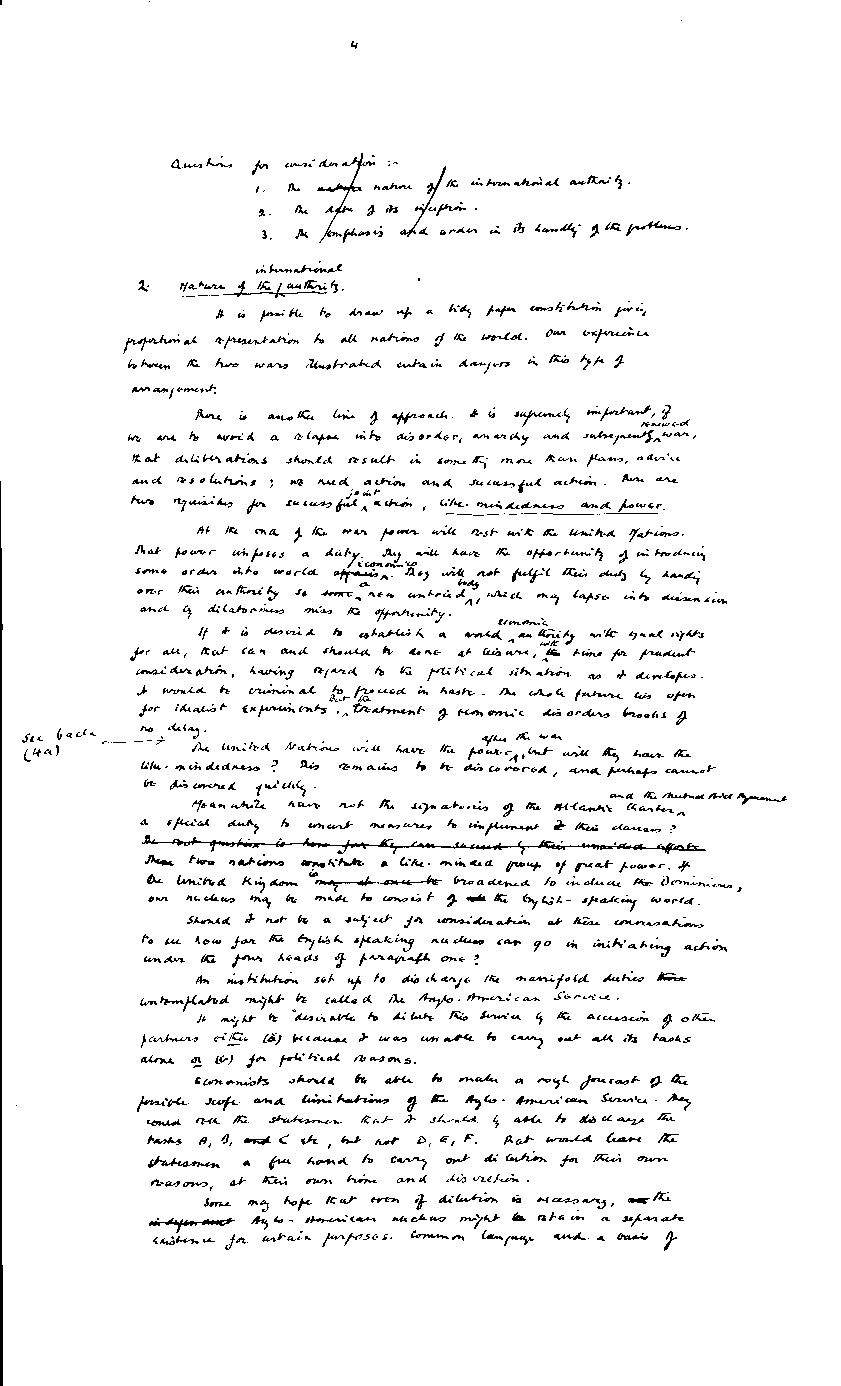 4
Questions for consideration :-
1. The nature nature of the international authority.
2. The date of its inception.
3. The emphasis and order in its handling of the problems.
international
2. Nature of the authority.
It is possible to draw up a tidy paper constitution giving
proportional representation to all nations of the world. Our experience
between the two wars illustrated certain dangers in this type of
arrangement.
There is another line of approach. It is supremely important, if
renewed
we are to avoid a relapse into disorder, anarchy and subsequently war,
that deliberations should result in something more than plans, advice
and resolutions; we need action and successful action. There are
joint
two requisites for successful action, like-mindedness and power.
At the end of the war power will rest with the United Nations.
That power imposes a duty. They will have the opportunity of introducing
economic
some order into world affairs. They will not fulfil their duty by handing
a body
over their authority to some new untried, which may lapse into dissension
and by dilatoriness miss the opportunity.
economic
If it is desired to establish a world authority with equal rights
with
for all, that can and should be done at leisure, the time for prudent
consideration, having regard to the political situation as it developes.
It would be criminal to proceed in haste. The whole future lies open
But the
for idealist experiments. treatment of economic disorders brooks of
no delay.
see back
(4a)
after the war
The United Nations will have the power, but will they have the
like-mindedness? This remains to be discovered, and perhaps cannot
be discovered quickly.
and the Mutual Aid Agreement
Meanwhile have not the signatories of the Atlantic Charter
a special duty to concert measures to implement their clauses?
The next question is how far they can succeed by their unaided efforts
These two nations constitute a like-minded group of great power. If
is
the United Kingdom may at once be broadened to include the Dominions,
our nucleus may be made to consist of the English-speaking world.
Should it not be a subject for consideration at these conversations
to see how far the English speaking nucleus can go in initiating action
under the four heads of paragraph one?
An institution set up to discharge the manifold duties there
contemplated might be called the Anglo-American Service.
It might be desirable to dilute this Service by the accession of other
partners either (a) because it was unable to carry out all its tasks
alone or (b) for political reasons.
Economists should be able to make a rough forecast of the
possible scope and limitations of the Anglo-American Service. They
could tell the statesmen that it should be able to discharge the
tasks A, B, and C etc, but not D, E, F. That would leave the
statesmen a free hand to carry out dilution for their own
reasons, at their own time and discretion.
Some may hope that even if dilution is necessary, the
independent Anglo-American nucleus might be retain a separate
existence for certain purposes. Common language and a basis of